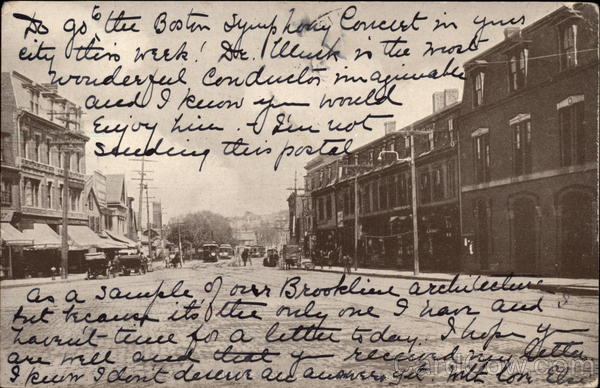 Do go to the Boston Symphony Concert in your
city this week! Dr. Muck is the most
wonderful conductor imaginable
and I know you would
Enjoy him. - I'm not
sending this postal
As a sample of our Brookline architecture
but because it's the only one I have and I
haven't time for a letter today. I hope you
are well and that you received my letter
I know I don't deserve an answer yet